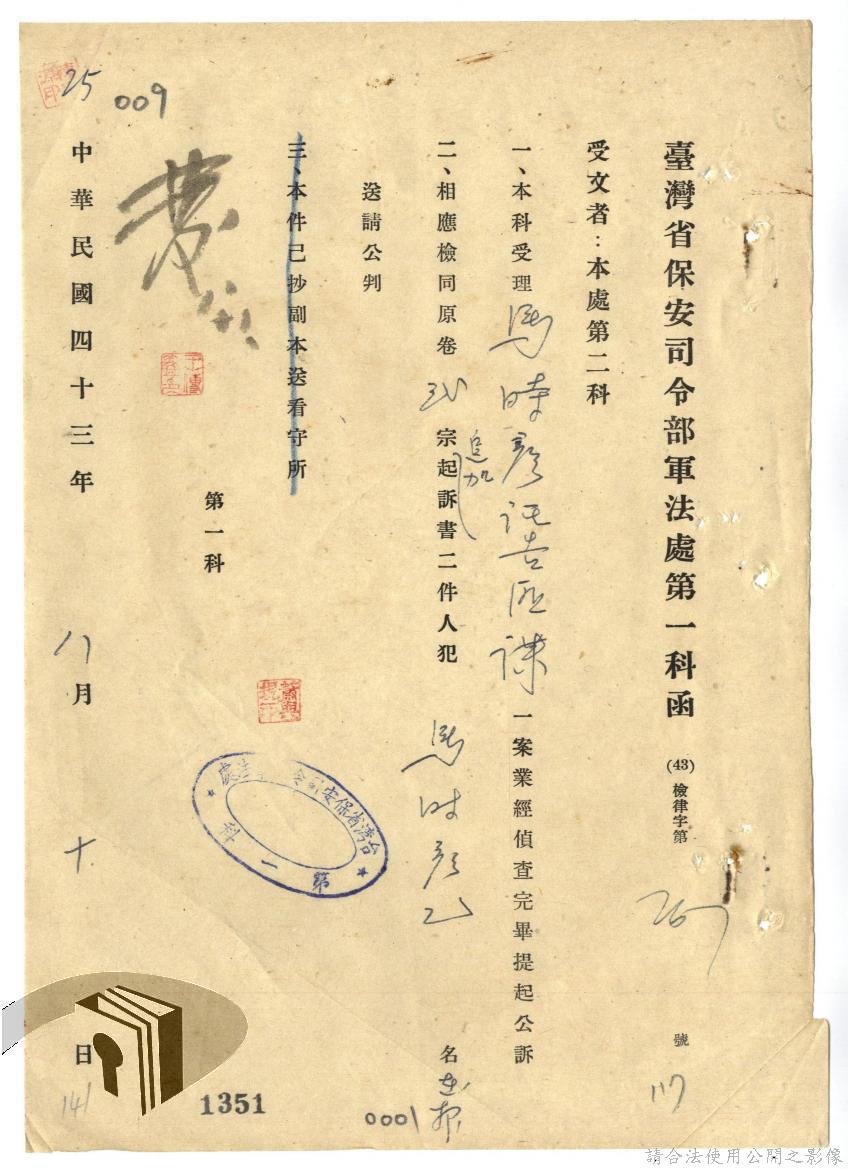 臺灣省保安司令部軍法處第一科函 (43)檢律字第 號
受文者：本處第二科
一、本科受理馬時彥誣告匪諜一案業經偵查完畢提起公訴
二、相應檢同原卷 宗追加起訴書二件人犯馬時彥乙名
送請公判
三、本件已抄副本送看守所
第一科
中華民國四十三年八月十日
25
009
台灣省保安司令
第一科
141
1351
0001
117
請合法使用公開之影像